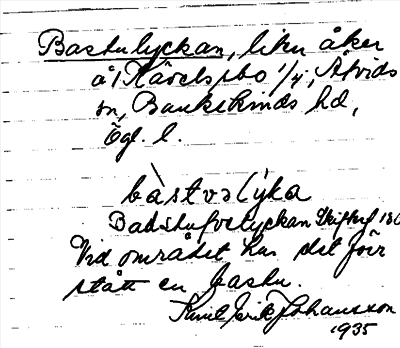 Bastulyckan, liten åker
å Håvelsbo 1/4, Åtvids
sn, Bankekinds hd,
Ögl. l.
bàstvəlýka
Badstufvelyckan Skifteskf 186
Vid området har det förr
stått en bastu.
Emil Erik Johansson
1935